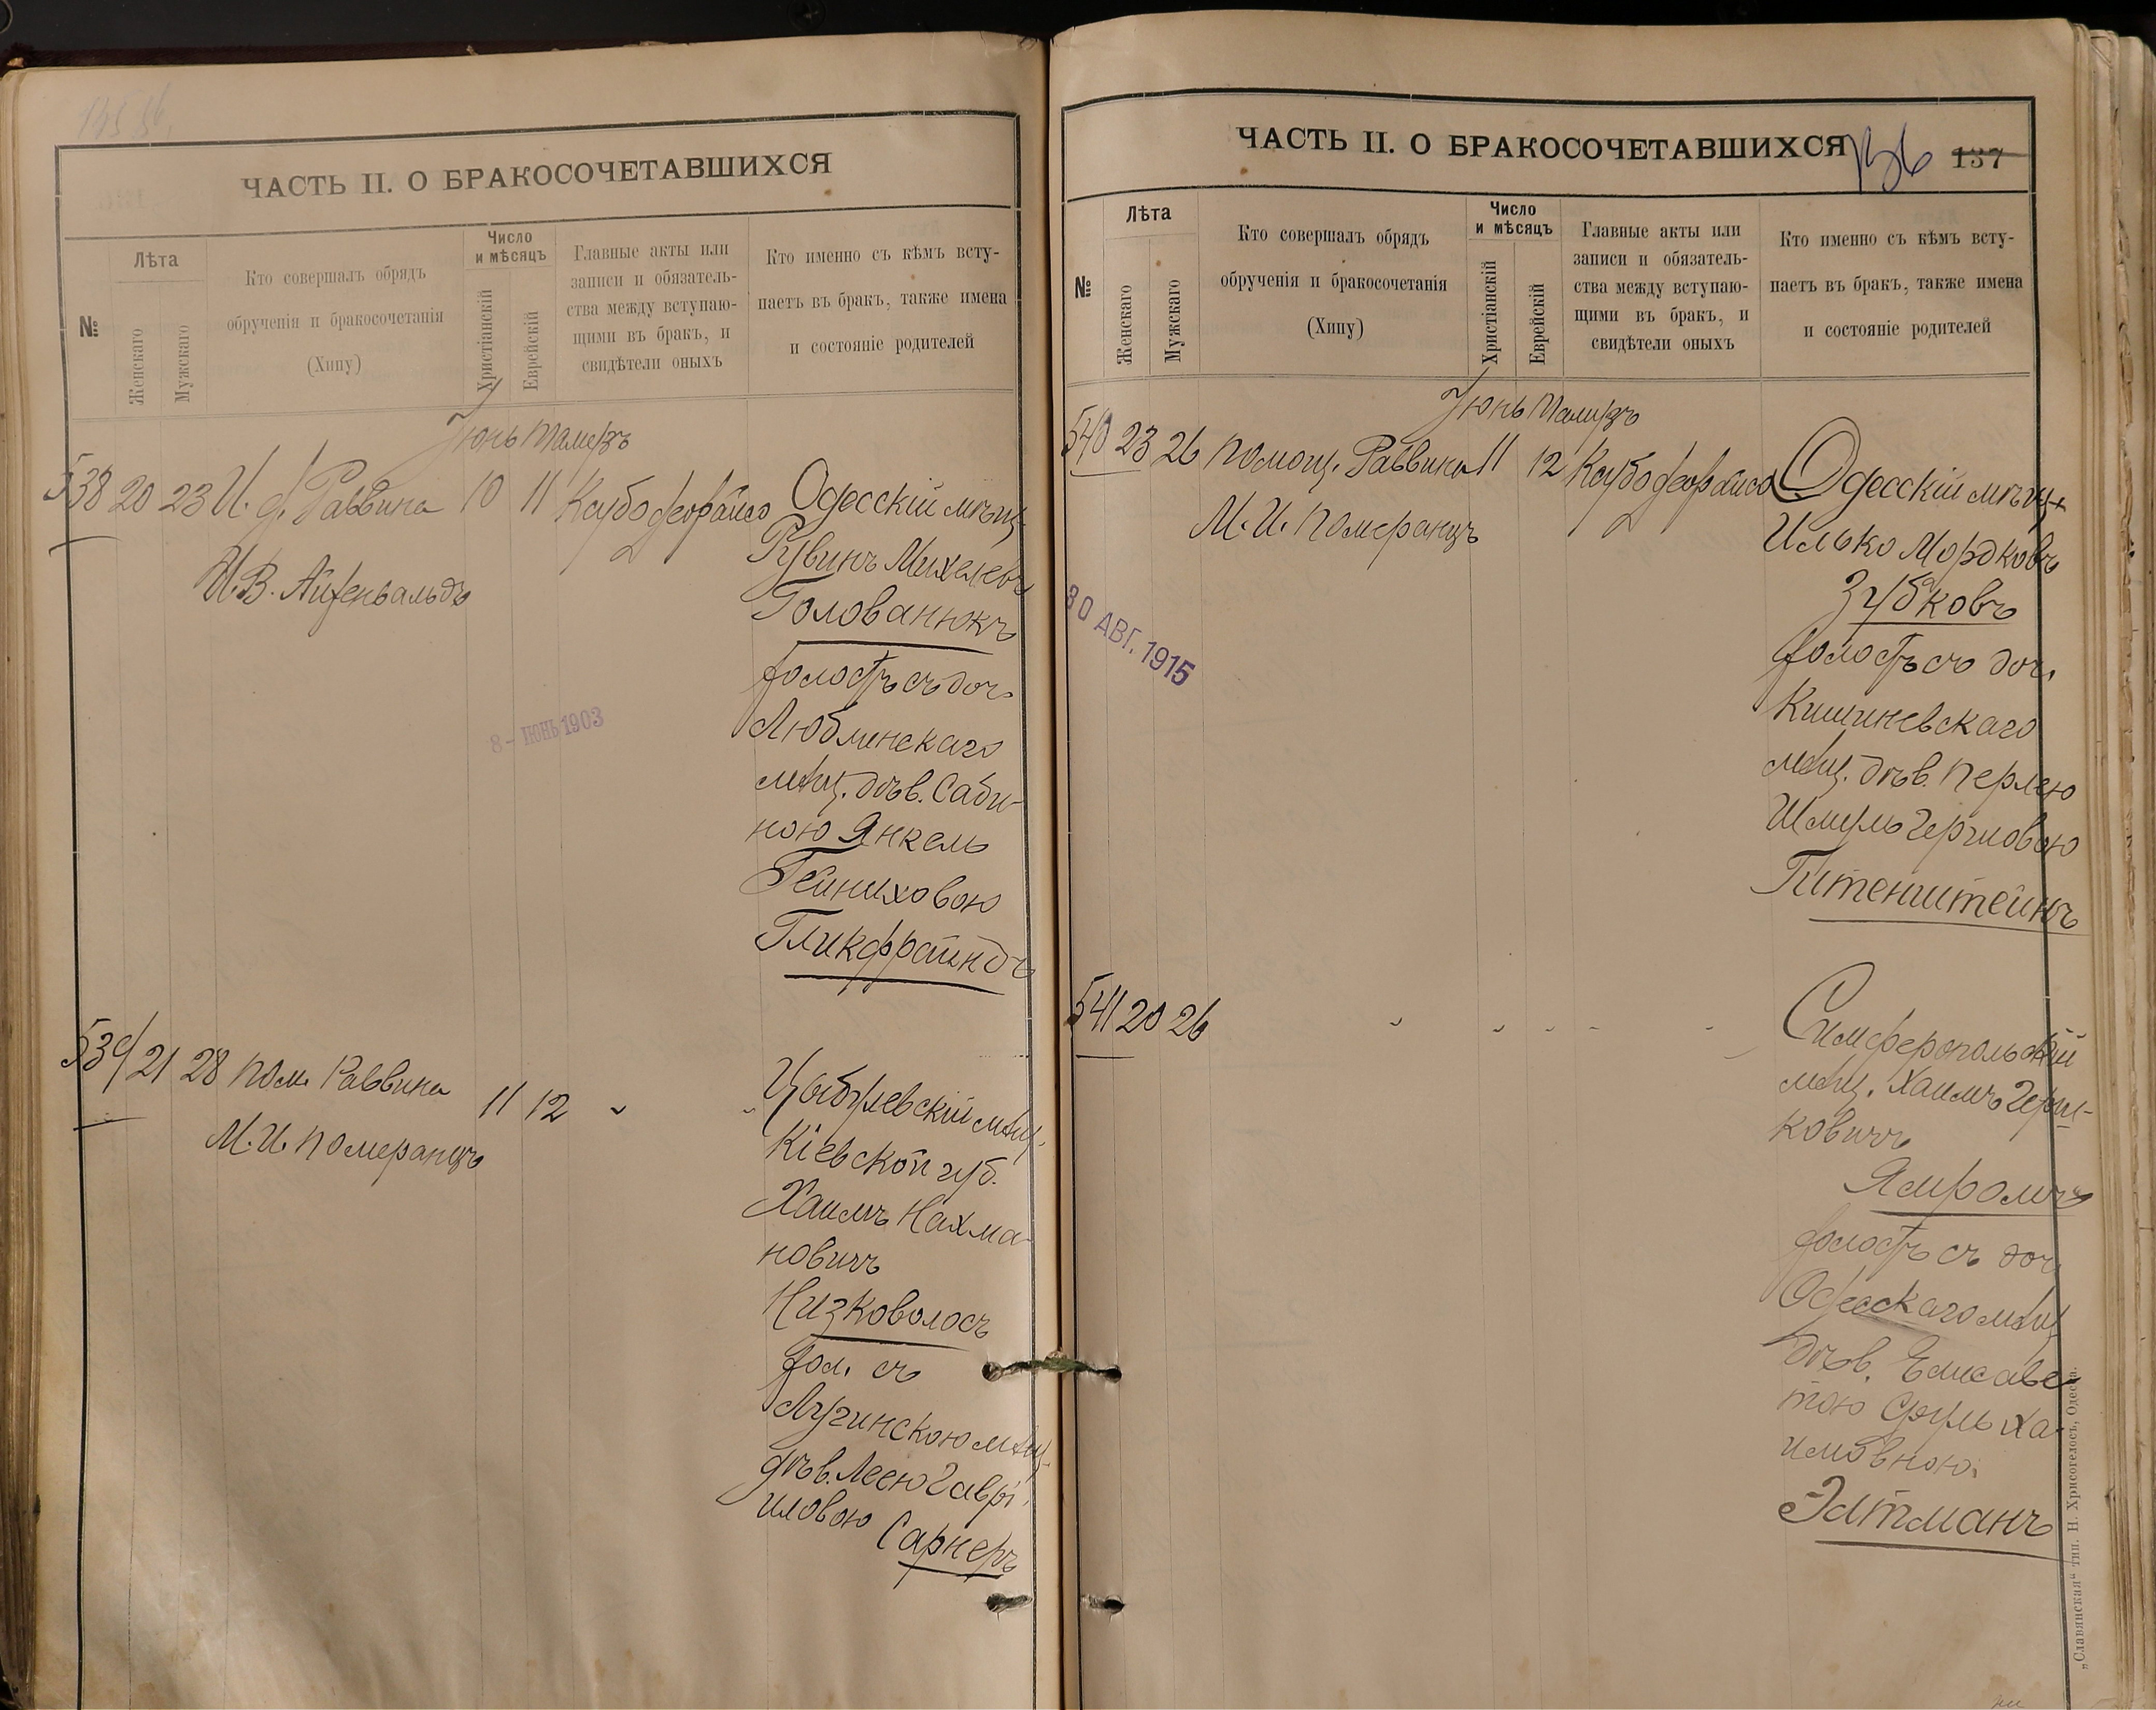 ЧАСТЬ II. О БРАКОСОЧЕТАВШИХСЯ
№
Лѣта
Женскаго
Мужскаго
Кто совершалъ обрядъ
обрученія и бракосочетанія
(Хипу)
Число
и мѣсяцъ
Христіанскій
Еврейскій
Главные акты или
записи и обязатель-
ства между вступаю-
щими въ бракъ, и
свидѣтели оныхъ
Кто именно съ кѣмъ всту-
паетъ въ бракъ, также имена
и состояніе родителей
Іюнь Тамузъ
538 20 23 И. д. Раввина 10 11
И.В. Айзенвальдъ
Одесскій мѣщ.
Рувинъ Михелевъ
Голованюкъ
холостъ съ доч.
Люблинскаго
мѣщ. дѣв. Саби-
ною Янкель
Гейниховою
Гликфрайндъ
8- ІЮНЬ 1903
539 21 28 пом. Раввина 11 12 " "
М.И. Померанцъ
Цыбулевскій мѣщ.
Кіевской губ.
Хаимъ Нахма-
новичъ
Низковолосъ
хол. съ
Лугинскою мѣщ.
дѣв. Леею Гаврі-
иловою Сарнеръ
ЧАСТЬ II. О БРАКОСОЧЕТАВШИХСЯ
136 137
№
Лѣта
Женскаго
Мужскаго
Кто совершалъ обрядъ
обрученія и бракосочетанія
(Хипу)
Число
и мѣсяцъ
Христіанскій
Еврейскій
Главные акты или
записи и обязатель-
ства между вступаю-
щими въ бракъ, и
свидѣтели оныхъ
Кто именно съ кѣмъ всту-
паетъ въ бракъ, также имена
и состояніе родителей
Іюнь Тамузъ
540 23 26 Помощ. Раввина 11 12
М.И. Померанцъ
30 АВГ. 1915
Одесскій мѣщ.
Илько Мордковъ
Зубковъ
холостъ съ доч.
Кишиневскаго
мѣщ. дѣв. Перлею
Шмуль Гершовою
Гитенштейнъ
541 20 26 " " " " "
Симферопольскій
мѣщ. Хаимъ Герш-
ковичъ
Ямполь
холостъ съ доч.
Одесскаго мѣщ.
дѣв. Елисаве
тою Сруль Ха-
имовною
Элтманъ
„Славянская“ тип. Н. Хрисогелосъ, Одесса.